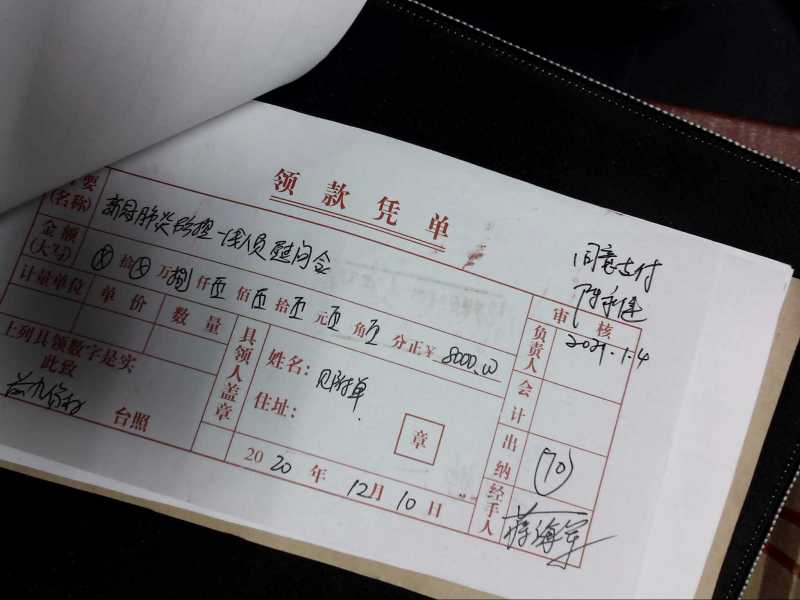 领款凭单
要
(名称)
新冠肺炎防控一线人员慰问金
金额
(大写)
拾 万捌仟 佰 拾 元 角 分正¥ 8000.00
计量单位 单价 数量
上列具领数字是实
此致
台照
具领人盖章
姓名: 见附单
住址:
章
2020年12月10日
同意支付
审核
负责人
2021.1.4
会计
出纳
(70)
经手人
蒋海军